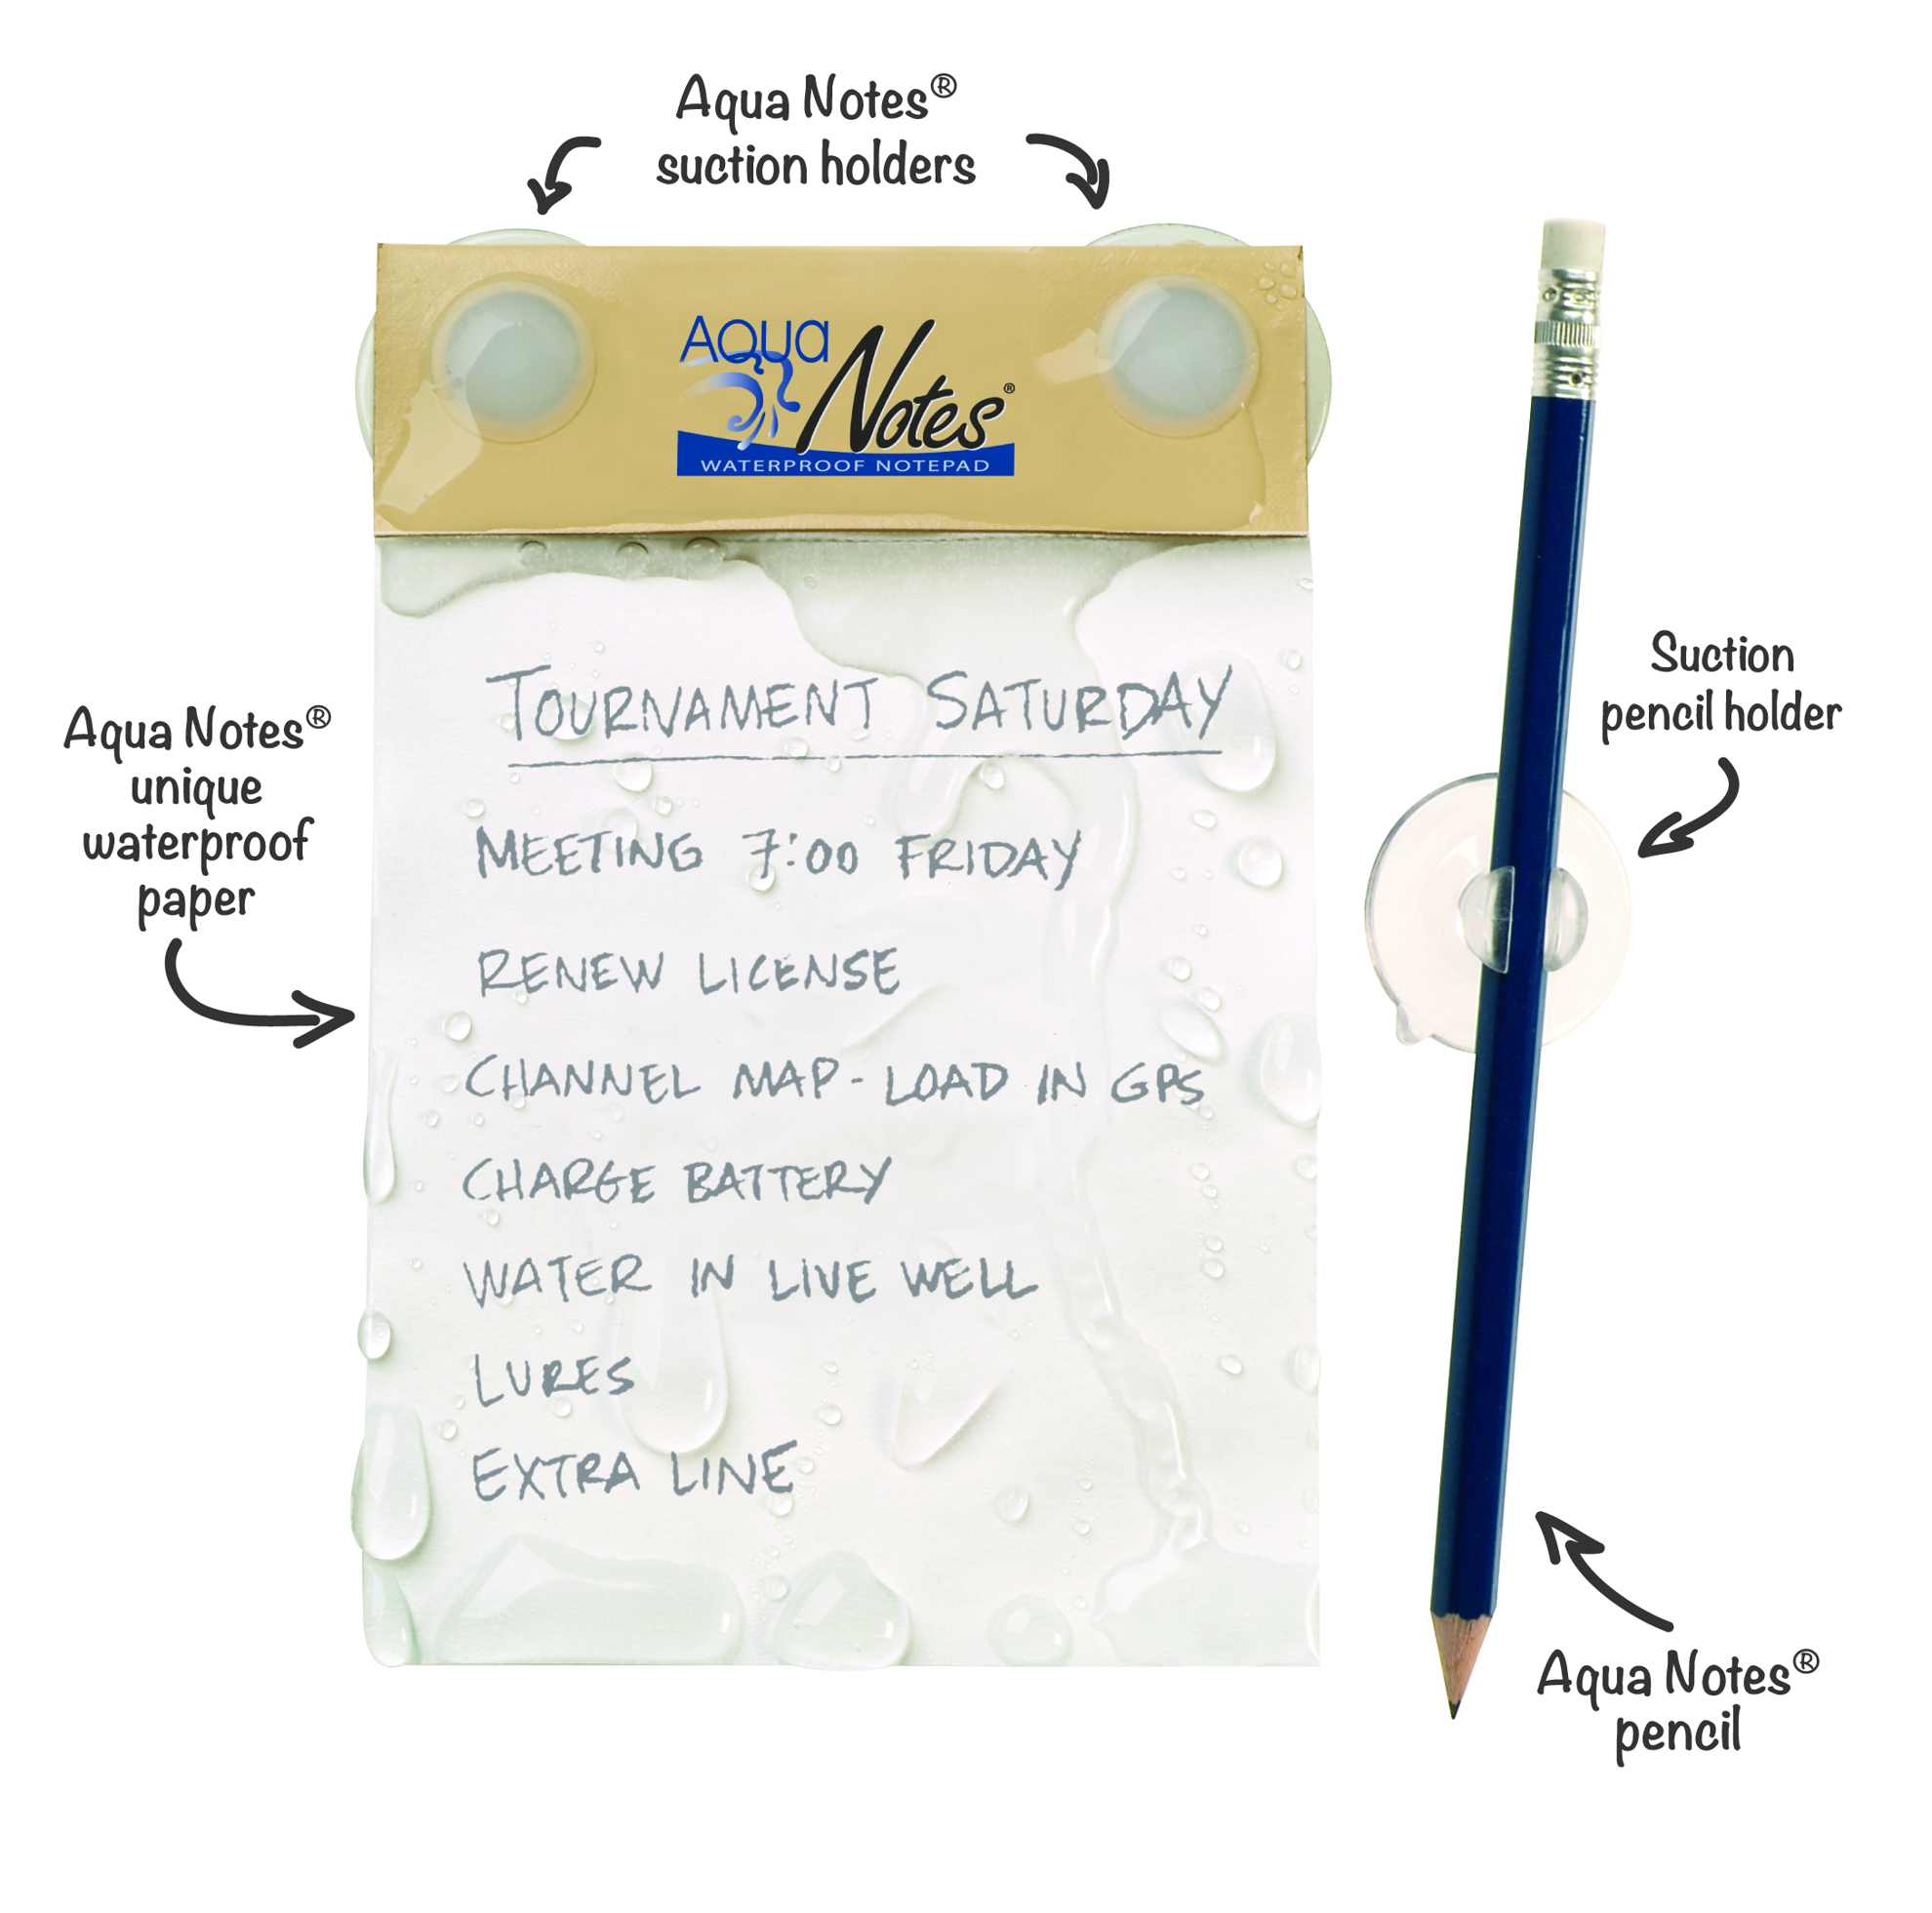 Aqua Notes®
suction holders
AQUA
Notes®
WATERPROOF NOTEPAD
TOURNAMENT SATURDAY
MEETING 7:00 FRIDAY
RENEW LICENSE
CHANNEL MAP - LOAD IN GPS
CHARGE BATTERY
WATER IN LIVE WELL
LURES
EXTRA LINE
Aqua Notes®
unique
waterproof
paper
Suction
pencil holder
Aqua Notes®
pencil